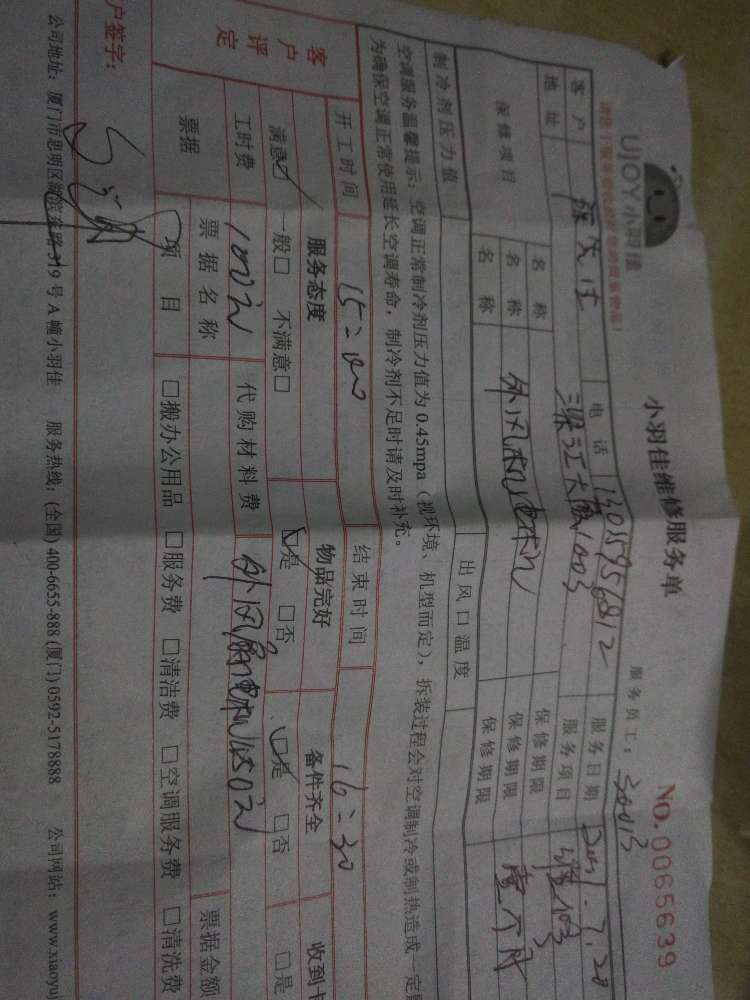 UJOY小羽佳
小羽佳维修服务单
NO. 0065639
服务员工: 30013
客户 电话 13015956812 服务日期 7.28
地址 深江大厦1003 服务项目 维修
保修项目 名称 外风机电机 保修期限 壹个月
名称 保修期限
名称 保修期限
制冷剂压力值 出风口温度
空调服务温馨提示: 空调正常制冷剂压力值为0.45mpa (视环境、机型而定), 拆装过程会对空调制冷或制热造成一定
为确保空调正常使用延长空调寿命, 制冷剂不足时请及时补充。
开工时间 15:00 结束时间 16:30
客户评定 服务态度 物品完好 备件齐全 收到
满意☑ 一般□ 不满意□ ☑是 □否 ☑是 □否 □是
工时费 100元 代购材料费 外风扇电机 元
票据 票据名称 票据金额
项目 □搬办公用品 □服务费 □清洁费 □空调服务费 □清洗费
户签字:
公司地址: 厦门市思明区湖滨东路319号A幢小羽佳 服务热线: (全国) 400-6655-888 (厦门) 0592-5178888 公司网站: www.xiaoyuj